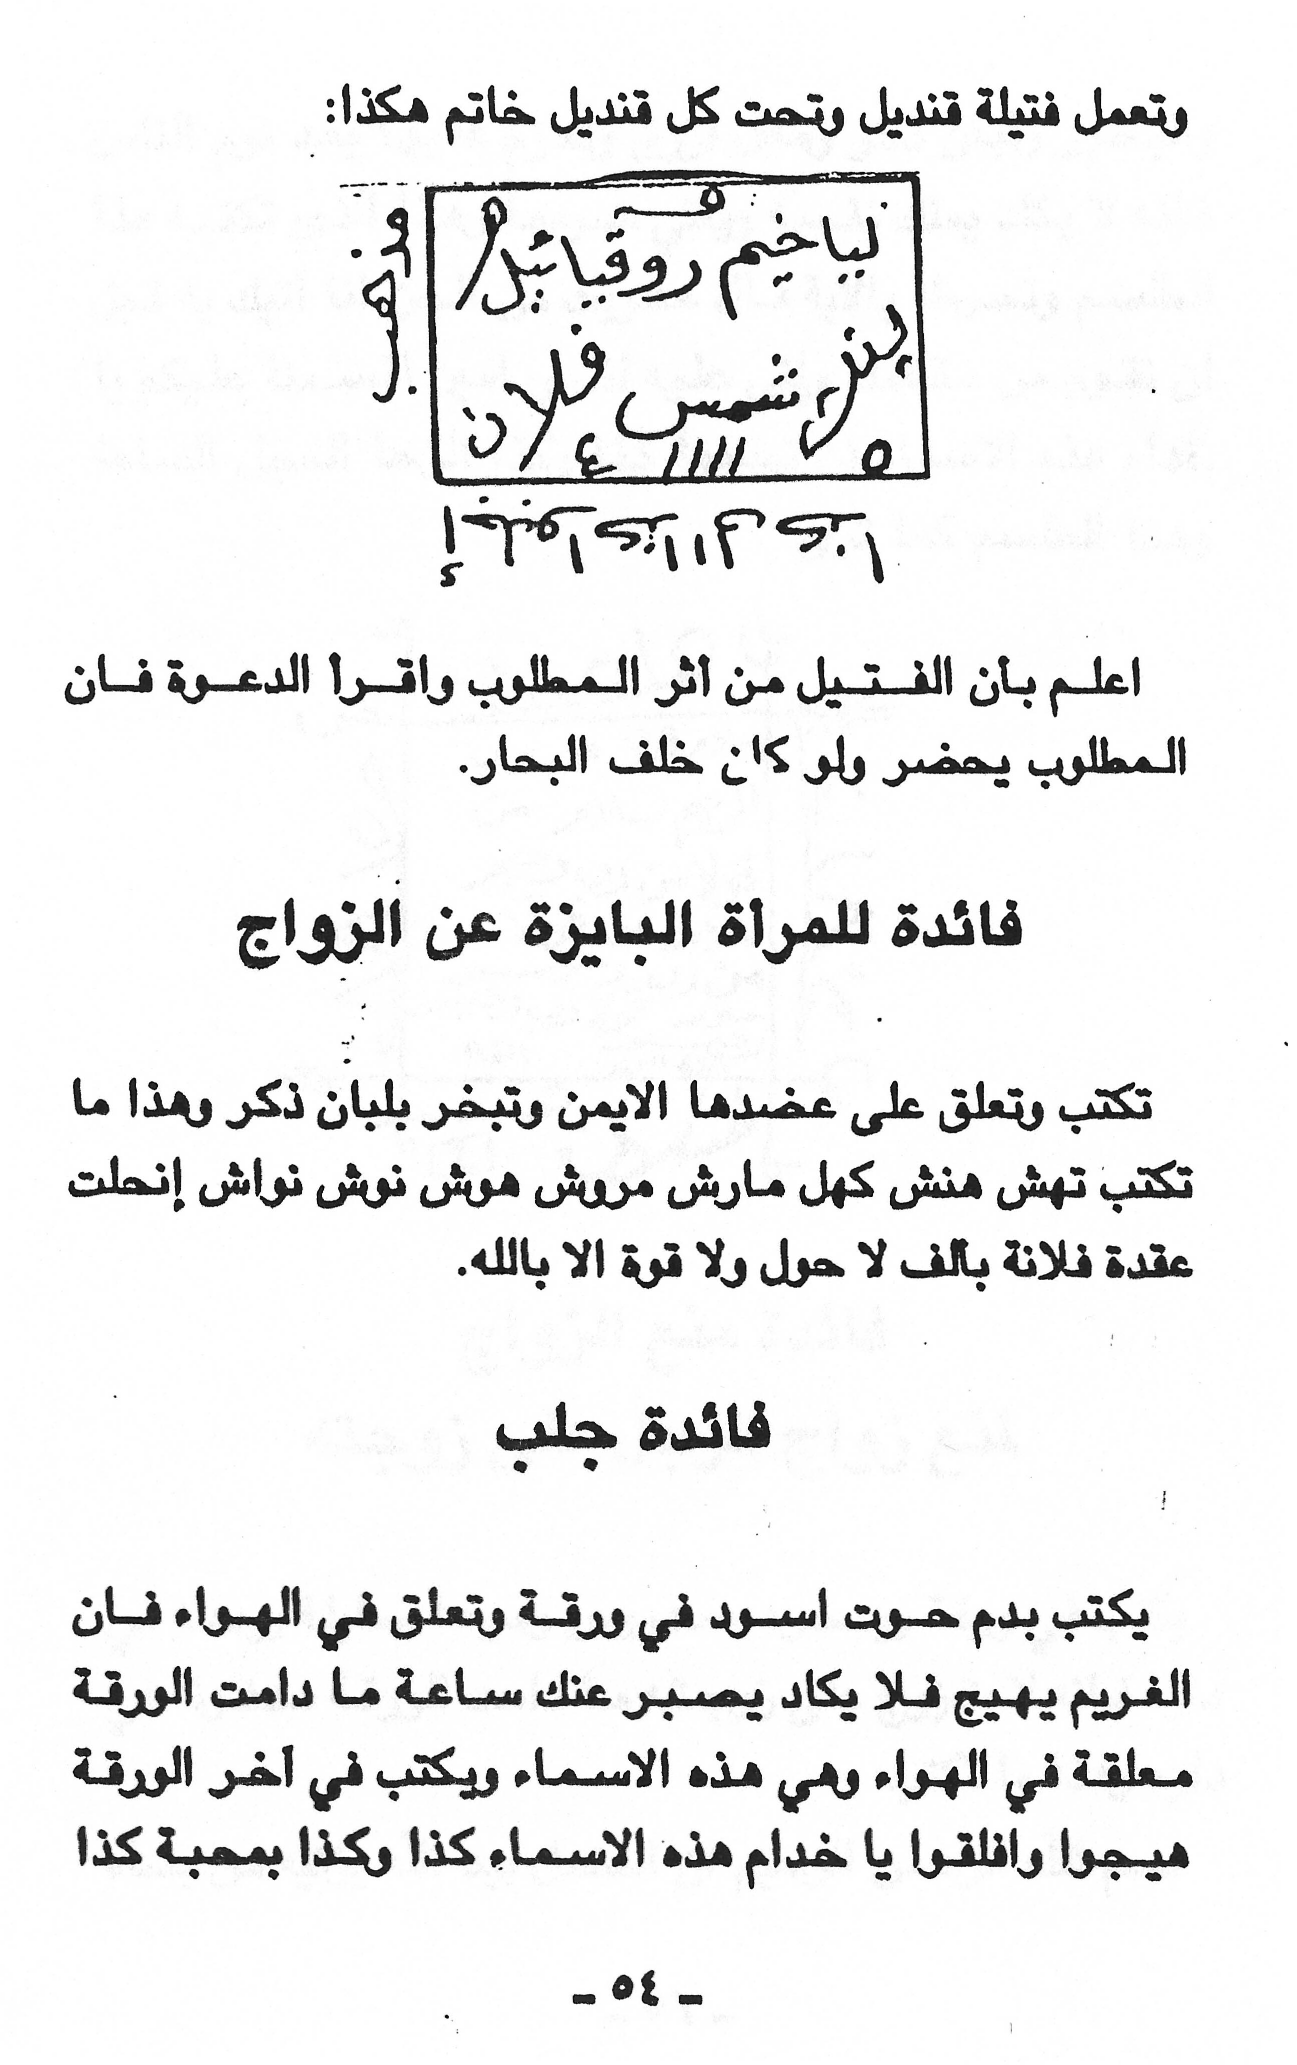 وتعمل فتيلة قنديل وتحت كل قنديل خاتم هكذا:
لياخيم روقيائيل
شمس فلان
اعلم بأن الفتيل من أثر المطلوب واقرأ الدعوة فان
المطلوب يحضر ولو كان خلف البحار.
فائدة للمرأة البايزة عن الزواج
تكتب وتعلق على عضدها الايمن وتبخر بلبان ذكر وهذا ما
تكتب تهش هنش كهل مارش مروش هوش نوش نواش إنحلت
عقدة فلانة بألف لا حول ولا قوة الا بالله.
فائدة جلب
يكتب بدم حوت اسود في ورقة وتعلق في الهواء فان
الغريم يهيج فلا يكاد يصبر عنك ساعة ما دامت الورقة
معلقة في الهواء وهي هذه الاسماء ويكتب في آخر الورقة
هيجوا وافلقوا يا خدام هذه الاسماء كذا وكذا بمحبة كذا
ـ ٥٤ ـ